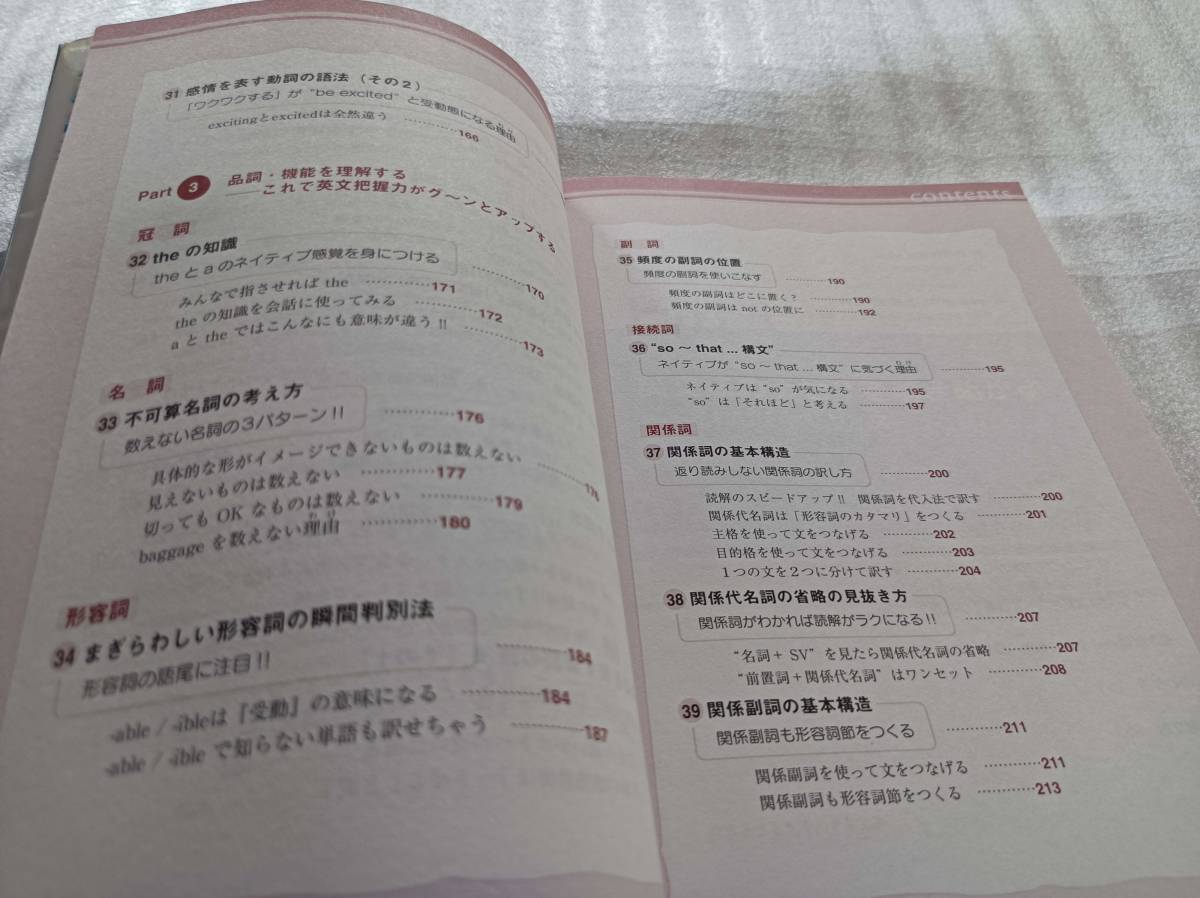 31 感情を表す動詞の語法（その2）
「ワクワクする」が “be excited” と受動態になる理由
excitingとexcitedは全然違う …………166
Part 3 品詞・機能を理解する
――これで英文把握力がグ〜ンとアップする
冠 詞
32 the の知識
the と a のネイティブ感覚を身につける …………170
みんなで指させれば the …………171
the の知識を会話に使ってみる …………172
a と the ではこんなにも意味が違う!! …………173
名 詞
33 不可算名詞の考え方
数えない名詞の3パターン!! …………176
具体的な形がイメージできないものは数えない …………176
見えないものは数えない …………177
切っても OK なものは数えない …………179
baggage を数えない理由 …………180
わけ
形容詞
34 まぎらわしい形容詞の瞬間判別法
形容詞の語尾に注目!! …………184
-able / -ibleは『受動』の意味になる …………184
-able / -ible で知らない単語も訳せちゃう …………187
contents
副 詞
35 頻度の副詞の位置
頻度の副詞を使いこなす …………190
頻度の副詞はどこに置く？ …………190
頻度の副詞は not の位置に …………192
接続詞
36 “so 〜 that … 構文”
ネイティブが “so 〜 that … 構文” に気づく理由 …………195
わけ
ネイティブは “so” が気になる …………195
“so” は「それほど」と考える …………197
関係詞
37 関係詞の基本構造
返り読みしない関係詞の訳し方 …………200
読解のスピードアップ!! 関係詞を代入法で訳す …………200
関係代名詞は「形容詞のカタマリ」をつくる …………201
主格を使って文をつなげる …………202
目的格を使って文をつなげる …………203
1つの文を2つに分けて訳す …………204
38 関係代名詞の省略の見抜き方
関係詞がわかれば読解がラクになる!! …………207
“名詞 + SV” を見たら関係代名詞の省略 …………207
“前置詞 + 関係代名詞” はワンセット …………208
39 関係副詞の基本構造
関係副詞も形容詞節をつくる …………211
関係副詞を使って文をつなげる …………211
関係副詞も形容詞節をつくる …………213